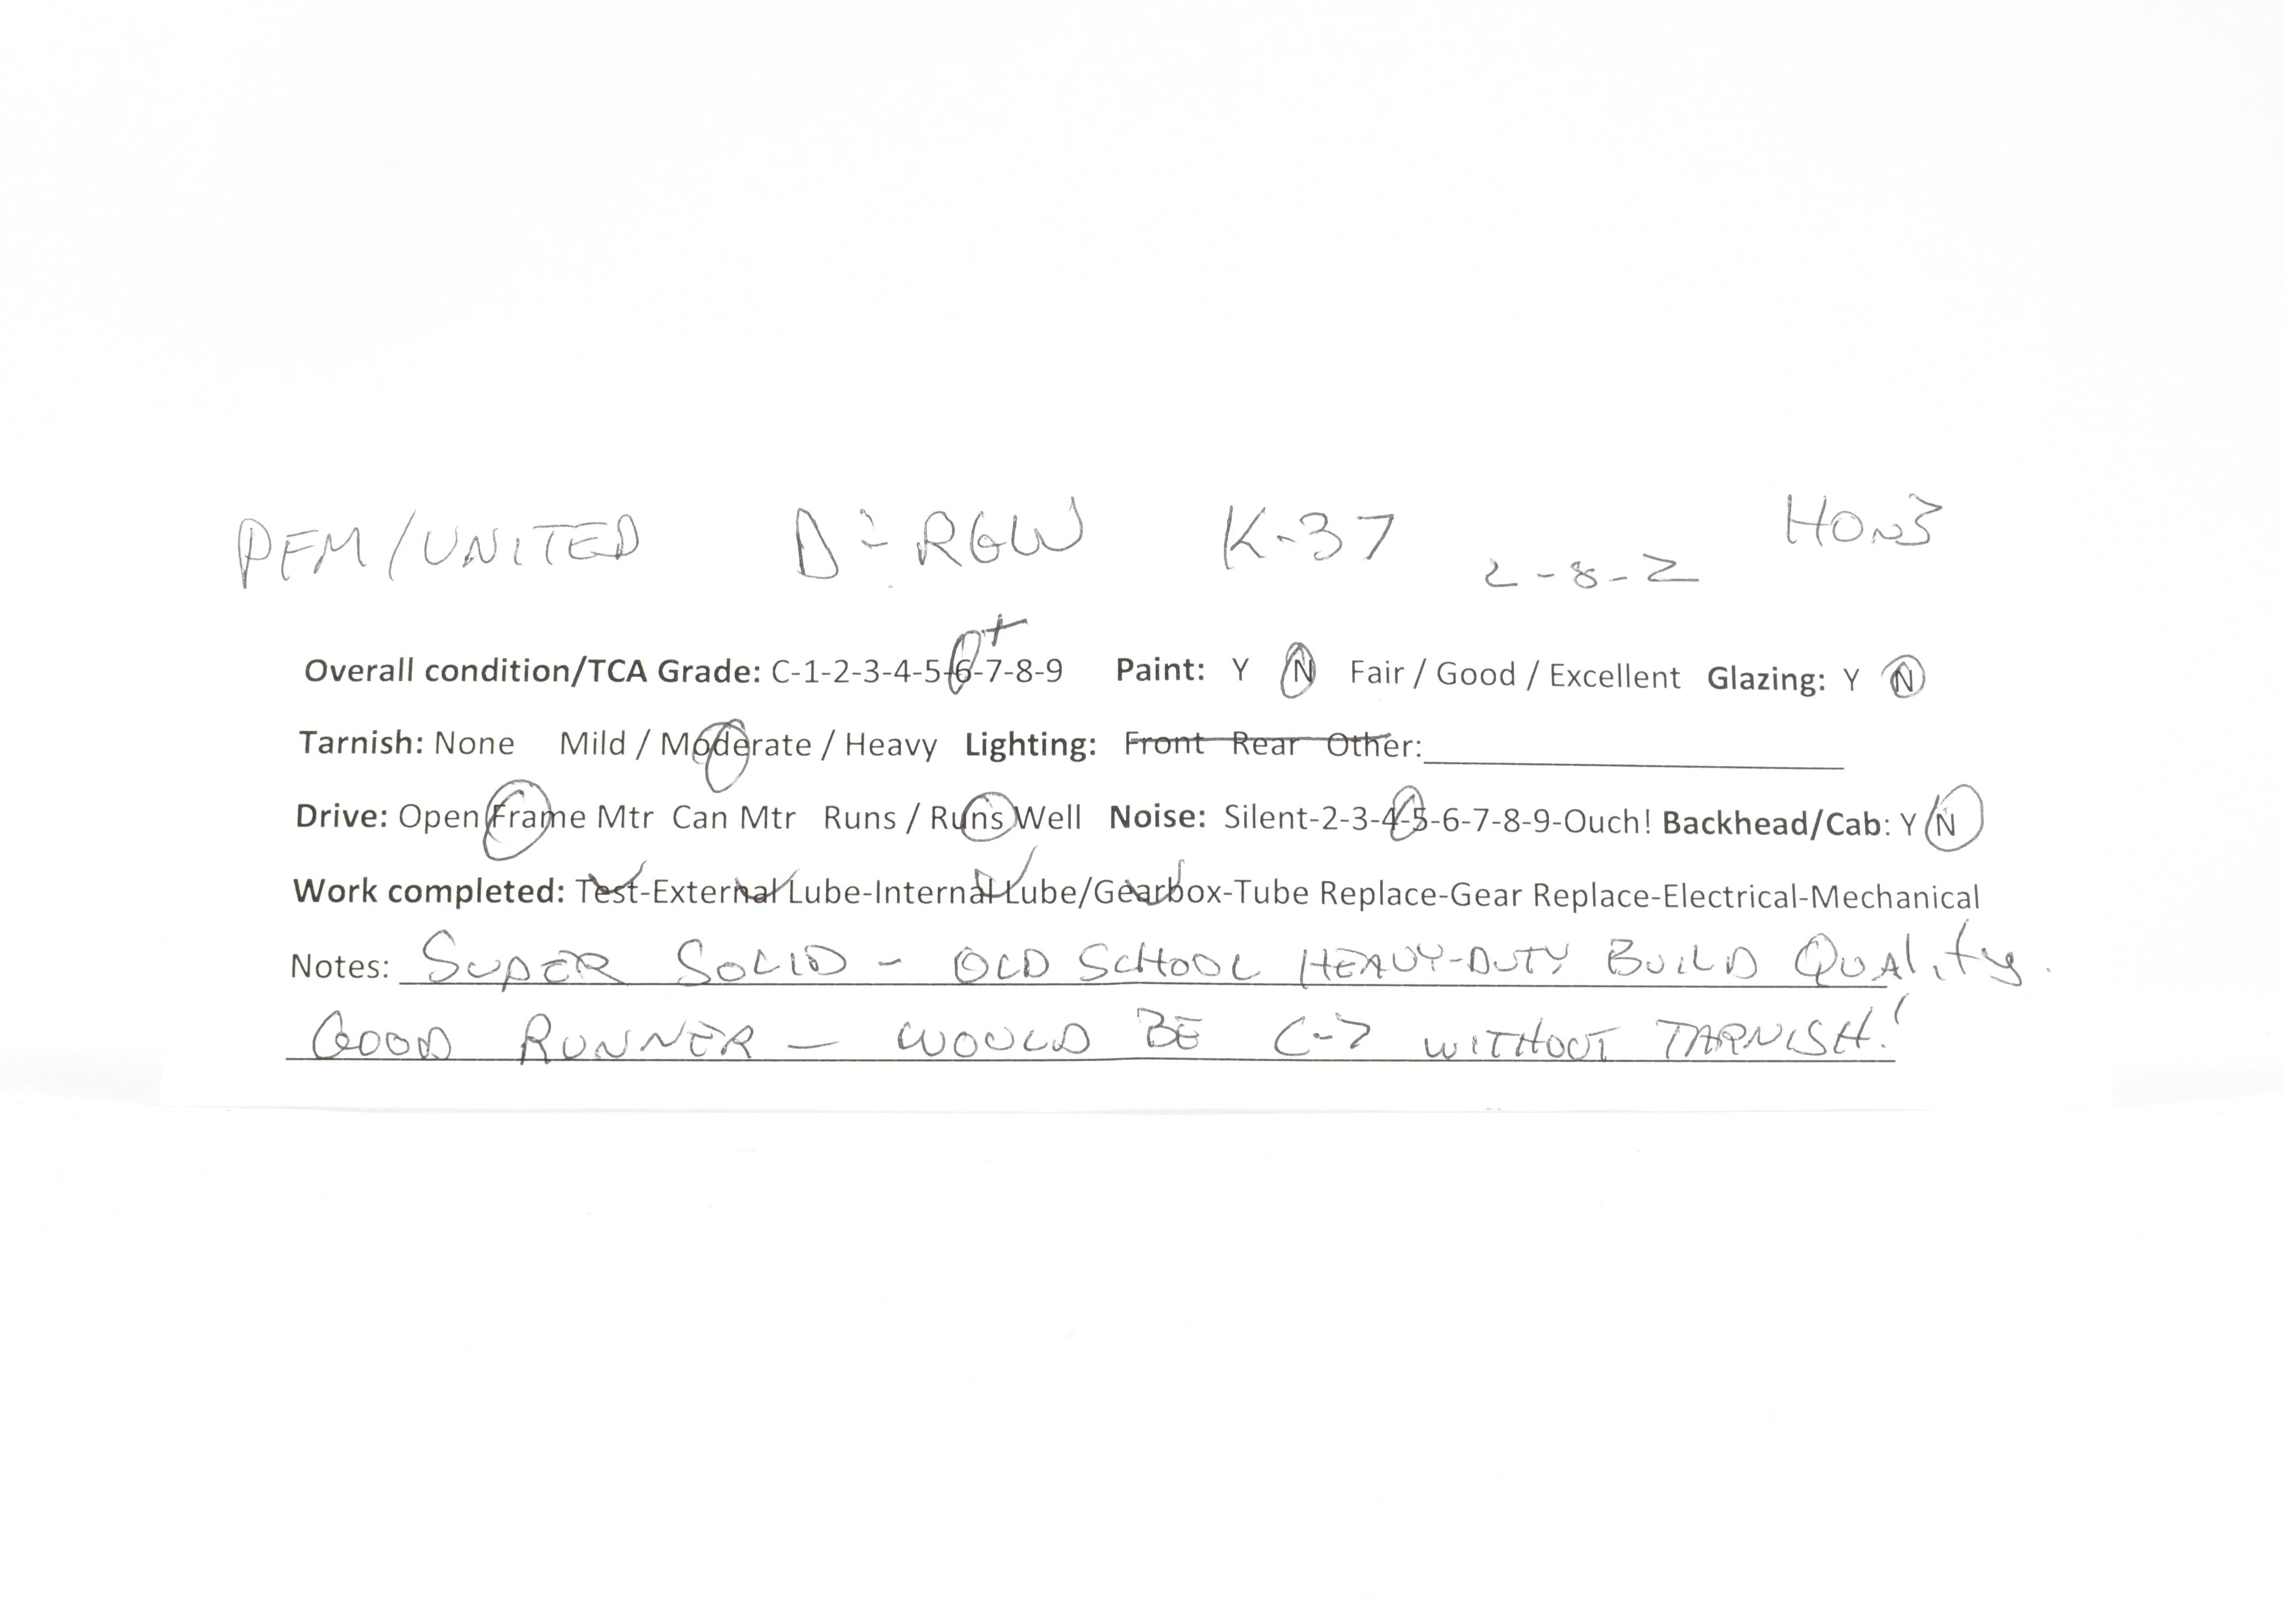 PFM/UNITED D&RGW K-37 2-8-2 HOn3
Overall condition/TCA Grade: C-1-2-3-4-5-6-7-8-9 + Paint: Y N Fair / Good / Excellent Glazing: Y N
Tarnish: None Mild / Moderate / Heavy Lighting: Front Rear Other:
Drive: Open Frame Mtr Can Mtr Runs / Runs Well Noise: Silent-2-3-4-5-6-7-8-9-Ouch! Backhead/Cab: Y N
Work completed: Test-External Lube-Internal Lube/Gearbox-Tube Replace-Gear Replace-Electrical-Mechanical
Notes: SUPER SOLID - OLD SCHOOL HEAVY-DUTY BUILD QUALity.
GOOD RUNNER - WOULD BE C-7 WITHOUT TARNISH!